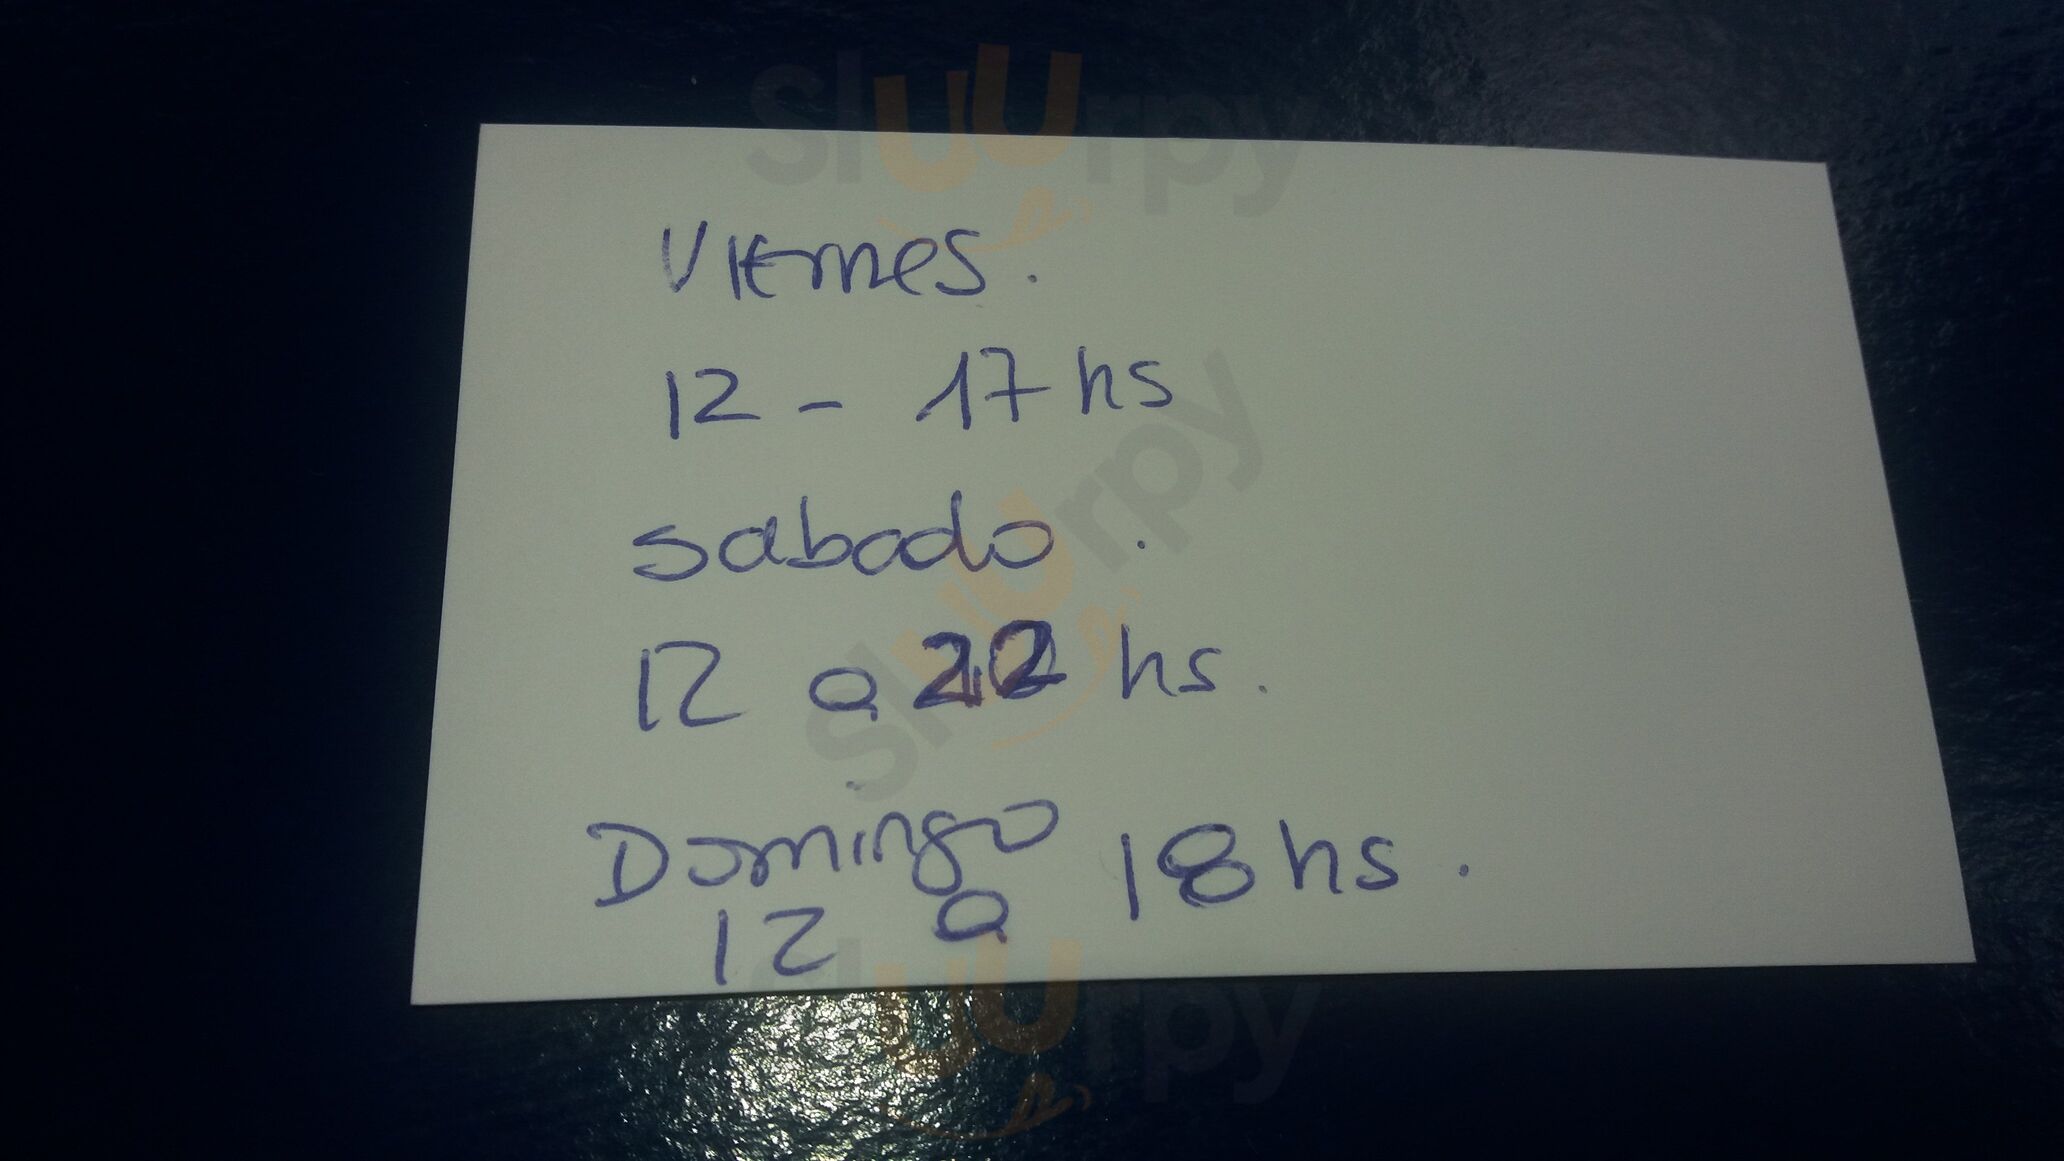 Sluurpy
Viernes.
12 - 17 hs
sabado.
Sluurpy
12 a 22 hs.
Domingo 18 hs.
12 a
Sluurpy